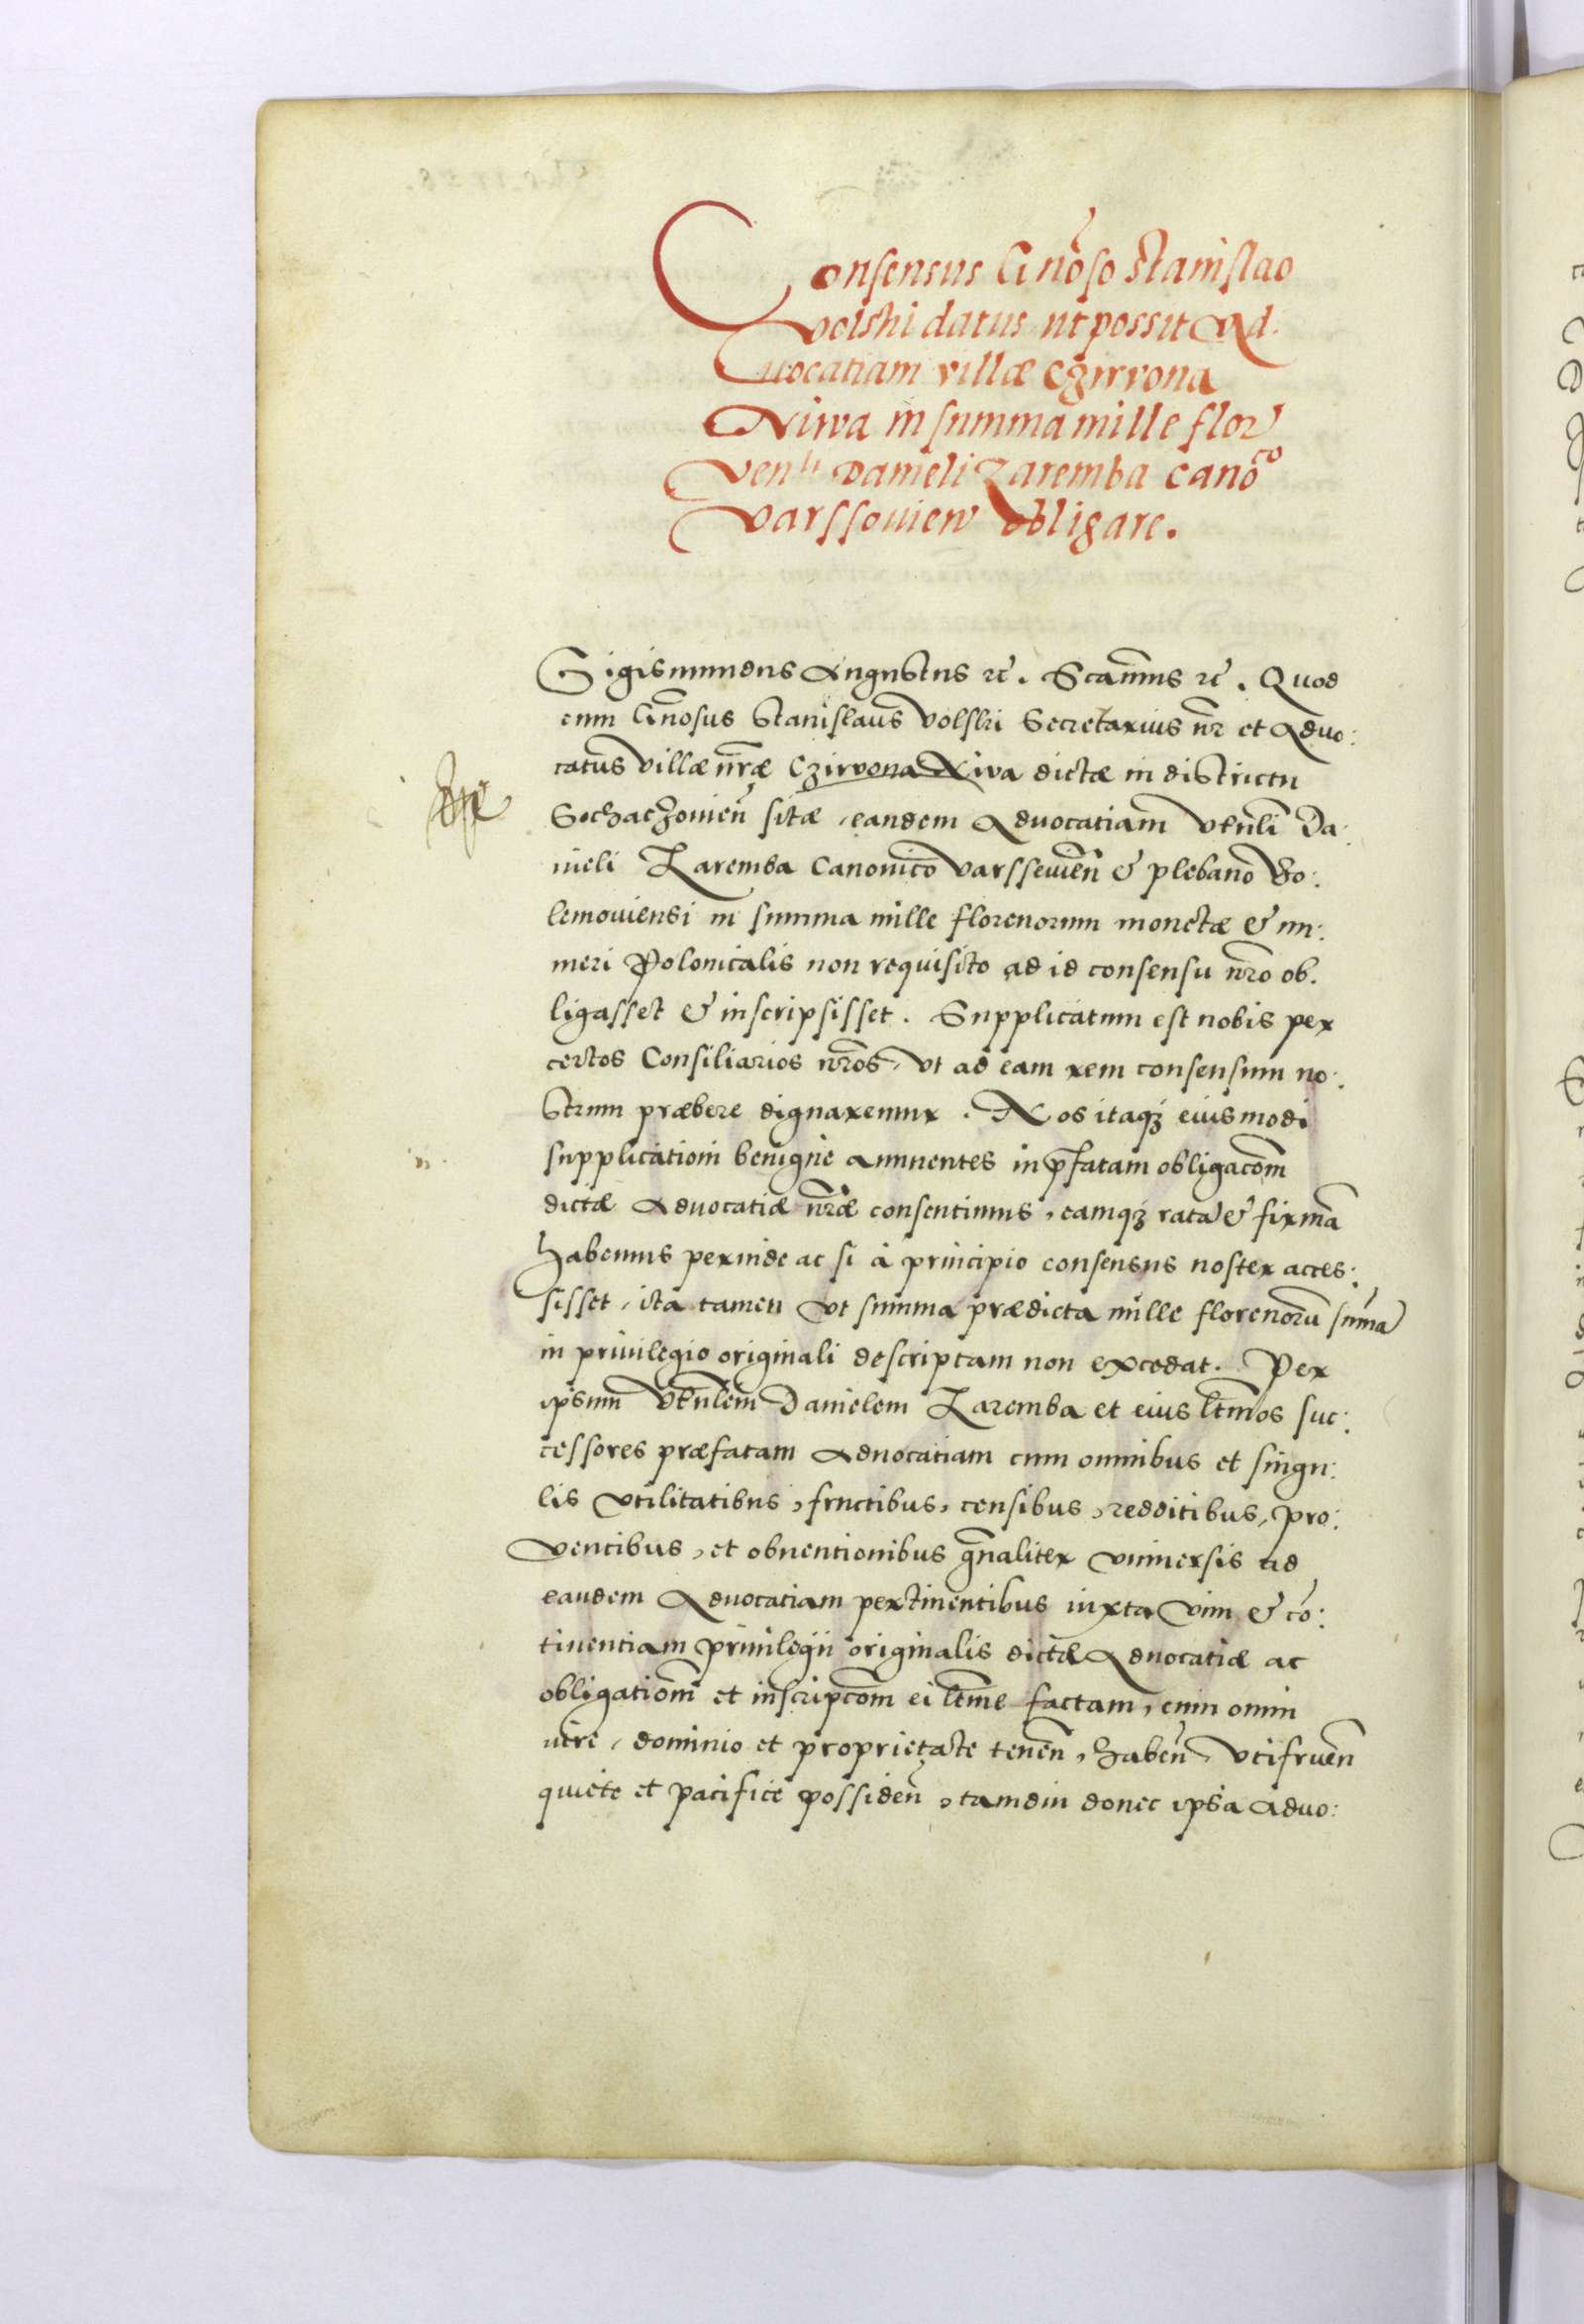 Consensus Gnoso Stanislao
Volski datus ut possit Ad.
uocatiam villæ Czirvona
Niwa in summa mille flor
Venli Danieli Zaremba canoco
Varssouien obligare.
Sigismundus Augustus etc. Scamus etc. Quod
cum Gnosus Stanislaus Volski Secretarius nr et Aduo:
catus villæ nræ Czirvona Niva dictæ in districtu
Sochaczouien sitæ, eandem Advocatiam Venli Da:
nieli Zaremba Canonico Varssevien & plebano Bo:
lemouiensi in summa mille florenorum monetæ & nu:
meri Polonicalis non requisito ad id consensu nro ob.
ligasset & inscripsisset. Supplicatum est nobis per
certos Consiliarios nros, ut ad eam rem consensum no:
strum præbere dignaremur. Nos itaq; eiusmodi
supplicationi benigne annuentes in pfatam obligacom
dictæ Advocatiæ nræ consentimus, eamq; rata & firma
habemus perinde ac si à principio consensus noster acces:
sisset, ita tamen ut summa prædicta mille florenoru suma
in priuilegio originali descriptam non excedat. Per
ipsum Venlem Danielem Zaremba et eius ltmos suc:
cessores præfatam Aduocatiam cum omnibus et singu:
lis utilitatibus, fructibus, censibus, redditibus, pro:
ventibus, et obuentionibus gnaliter vniuersis ad
eandem Aduocatiam pertinentibus iuxta vim & co:
tinentiam priuilegii originalis dictæ Aduocatiæ ac
obligationi et inscripcom ei ltme factam, cum omni
iure, dominio et proprietate tenen, haben, utifruen
quiete et pacifice possiden, tamdiu donec ipsa Aduo: